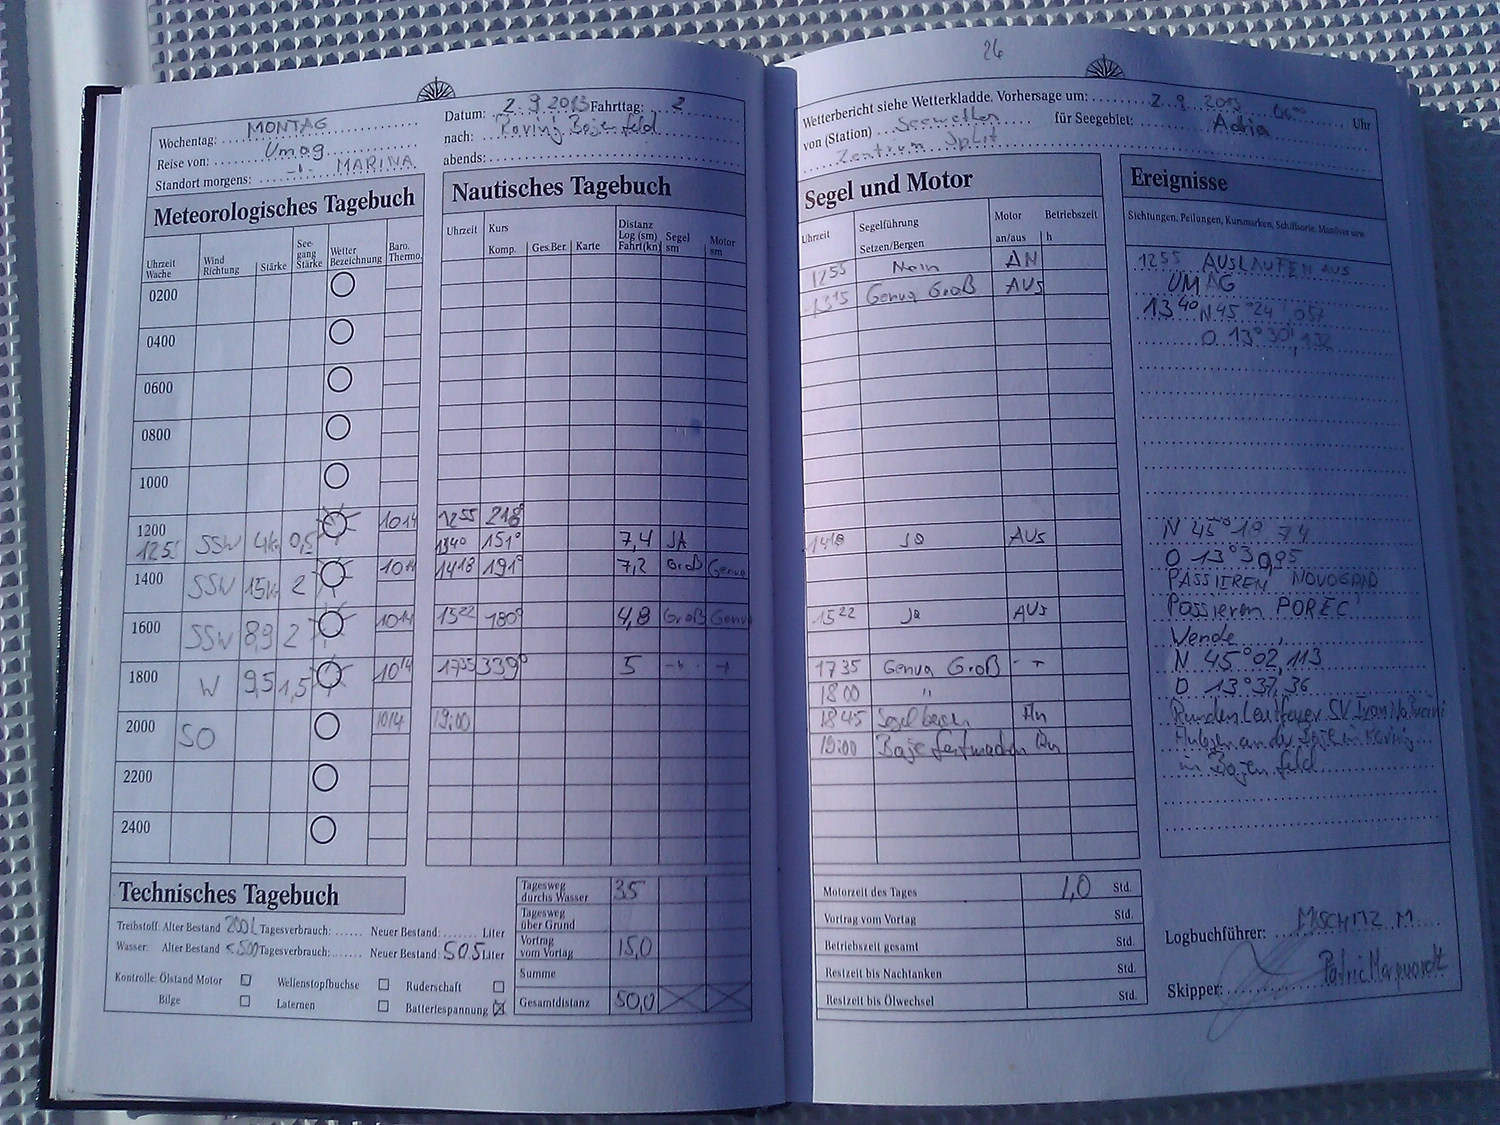 26
Wochentag: MONTAG
Datum: 2.9.2013 Fahrttag: 2
Reise von: Umag
nach: Roving Bojenfeld
Standort morgens: -"- MARINA
abends:
Meteorologisches Tagebuch
Uhrzeit Wache
Wind Richtung
Stärke
See-gang Stärke
Wetter Bezeichnung
Baro. Thermo.
0200
0400
0600
0800
1000
1200 1014
1255 SSW 4kn 0,5
1400 SSW 15kn 2 1014
1600 SSW 8,9 2 1014
1800 W 9,5 1,5 1014
2000 SO 1014
2200
2400
Nautisches Tagebuch
Uhrzeit
Kurs
Komp.
Ges.Ber.
Karte
Distanz Log (sm) Fahrt(kn)
Segel sm
Motor sm
1255 218°
1340 151° 7,4 JA
1418 191° 7,2 Groß Genua
1522 180° 4,8 Groß Genua
1735 339° 5 -"- -"-
19:00
Technisches Tagebuch
Treibstoff: Alter Bestand 200L Tagesverbrauch: Neuer Bestand: Liter
Wasser: Alter Bestand <500 Tagesverbrauch: Neuer Bestand: 505 Liter
Kontrolle: Ölstand Motor
Wellenstopfbuchse
Ruderschaft
Bilge
Laternen
Batteriespannung
Tagesweg durchs Wasser 35
Tagesweg über Grund
Vortrag vom Vortag 15,0
Summe
Gesamtdistanz 50,0
Wetterbericht siehe Wetterkladde. Vorhersage um: 2.9.2013 06°° Uhr
von (Station) Seewetter für Seegebiet: Adria
Zentrum Split
Segel und Motor
Uhrzeit
Segelführung
Setzen/Bergen
Motor an/aus
Betriebszeit h
1255 Nein AN
1315 Genua Groß AUS
1418 Ja AUS
1522 Ja AUS
1735 Genua Groß -"-
1800 "
1845 Segel bergen An
19:00 Boje festmachen An
Motorzeit des Tages 1,0 Std.
Vortrag vom Vortag Std.
Betriebszeit gesamt Std.
Restzeit bis Nachtanken Std.
Restzeit bis Ölwechsel Std.
Ereignisse
Sichtungen, Peilungen, Kursmarken, Schiffsorte, Manöver usw.
1255 AUSLAUFEN AUS
UMAG
1340 N 45°24',057
O 13°30',132
N 45°19 74
O 13°30,95
PASSIEREN NOVOGRAD
Passieren POREC
Wende
N 45°02,113
O 13°37,36
Runden Leutfeuer SV Ivan Na
Anlegen an der Boje in
in Bojenfeld
Logbuchführer: MISCHITZ M.
Skipper: Patric Marquardt